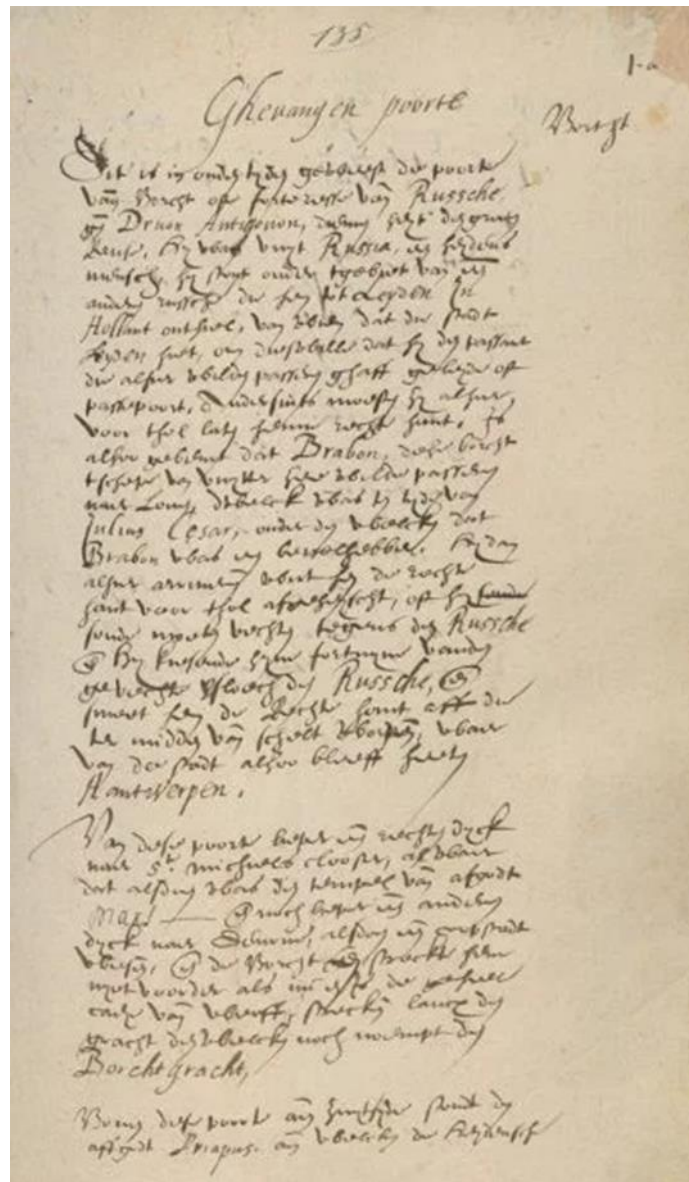 135
1-a
Gheuangen poorte
Borcht
Dit is in ouden tyden geweest die poorte
van Borcht oft forteresse van Russche
Druon Antigonon,
Reuse, hy was vuyt Russia, een heydens
mensch, hy stont onder tgebiet van een
ander russche die hem tot Leyden In
Hollant onthiel, van wien dat die stadt
Leyden hiet, om dieswille dat hy den passant
die alhier wilden passeren ghaff geleyde oft
passepoort, Andersints moesten hy alhier,
voor thol laten henne rechte hant, Is
alsoo gebeurt dat Brabon, dese borcht
hier wilde passeren
naer dwelck was ten tyde van
Julius Cesar, onder den welcken dat
Brabon was een beuelhebber. hy dan
alhier wirt hem de rechte
hant voor thol afgeheyscht, oft hy
soude moeten vechten tegens den Russche
hy kiesende syne fortuyne vanden
gevechte versloech den Russche, en
smeet hem de Rechte hant aff die
ter midden van schelt worpen, waer
van die stadt alsoo bleeff heeten
Hantwerpen.
Van dese poorte liep een rechten dyck
naer St. Michiels clooster, alwaer
dat alsdoen was den tempel van afgodt
Mars noch liep een anderen
dyck naer Deurne, alsdan een
en de Borcht streckte hem
niet voorder als nu de geheel
van werff, streckende lancx den
gracht den welcken noch noempt den
Borchtgracht,
Boven dese poorte aen suytsyde stont den
afgodt Priapus, aen welcken de heydensche